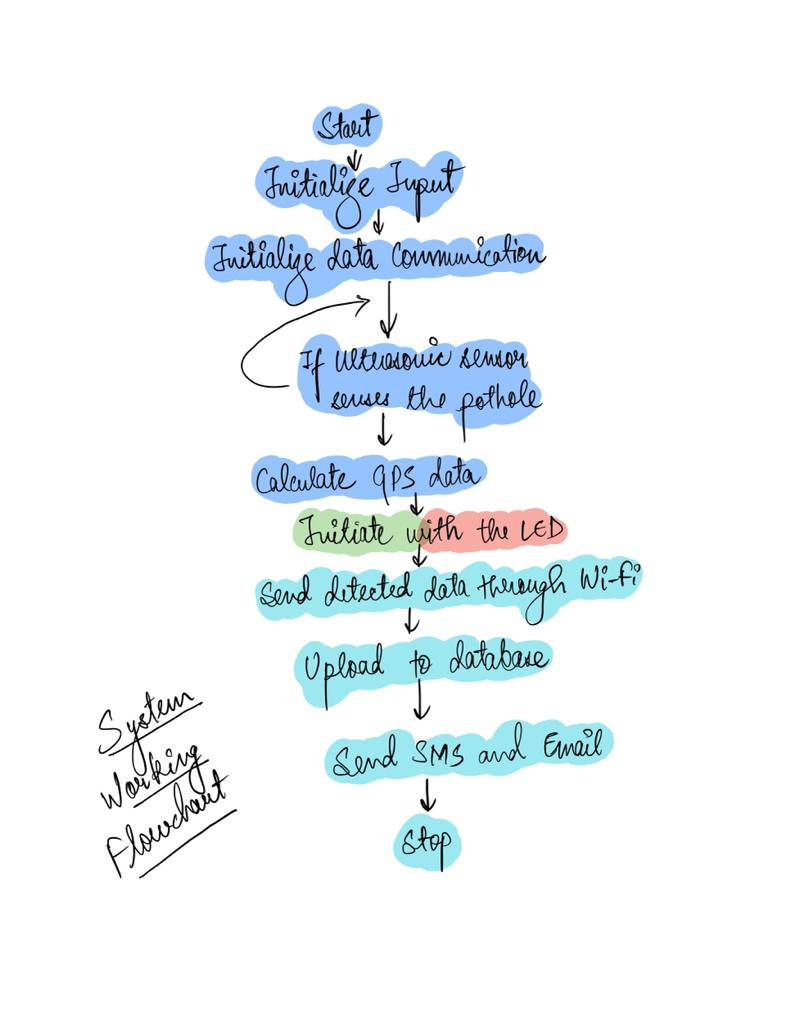 Start
Initialize Input
Initialize data Communication
If Ultrasonic sensor
senses the pothole
Calculate GPS data
Initiate with the LED
Send detected data through Wi-fi
Upload to database
Send SMS and Email
Stop
System
Working
Flowchart